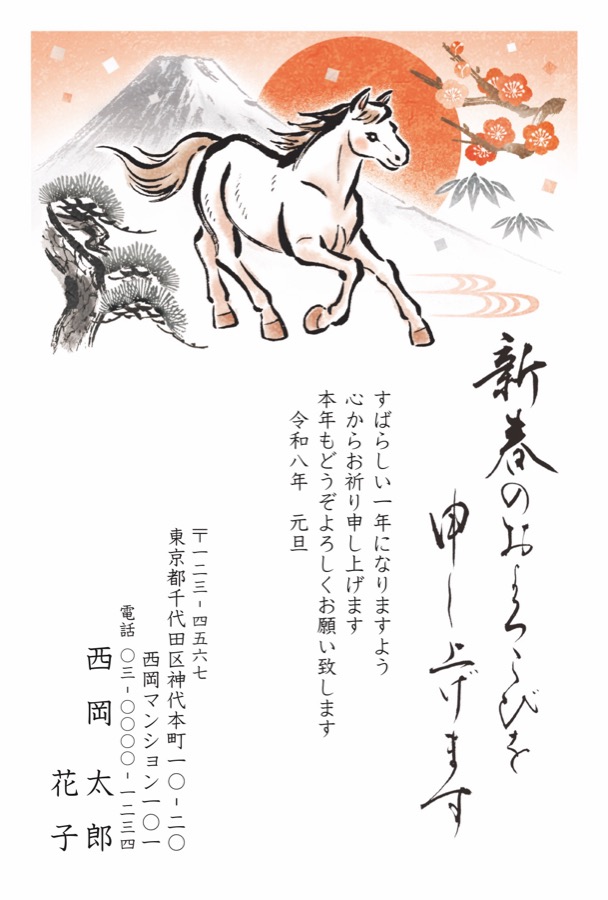 新春のおよろこびを
申し上げます
すばらしい一年になりますよう
心からお祈り申し上げます
本年もどうぞよろしくお願い致します
令和八年　元旦
〒一二三-四五六七
東京都千代田区神代本町一〇-二〇
西岡マンション一〇一
電話　〇三-〇〇〇〇-一二三四
西岡　太郎
花子